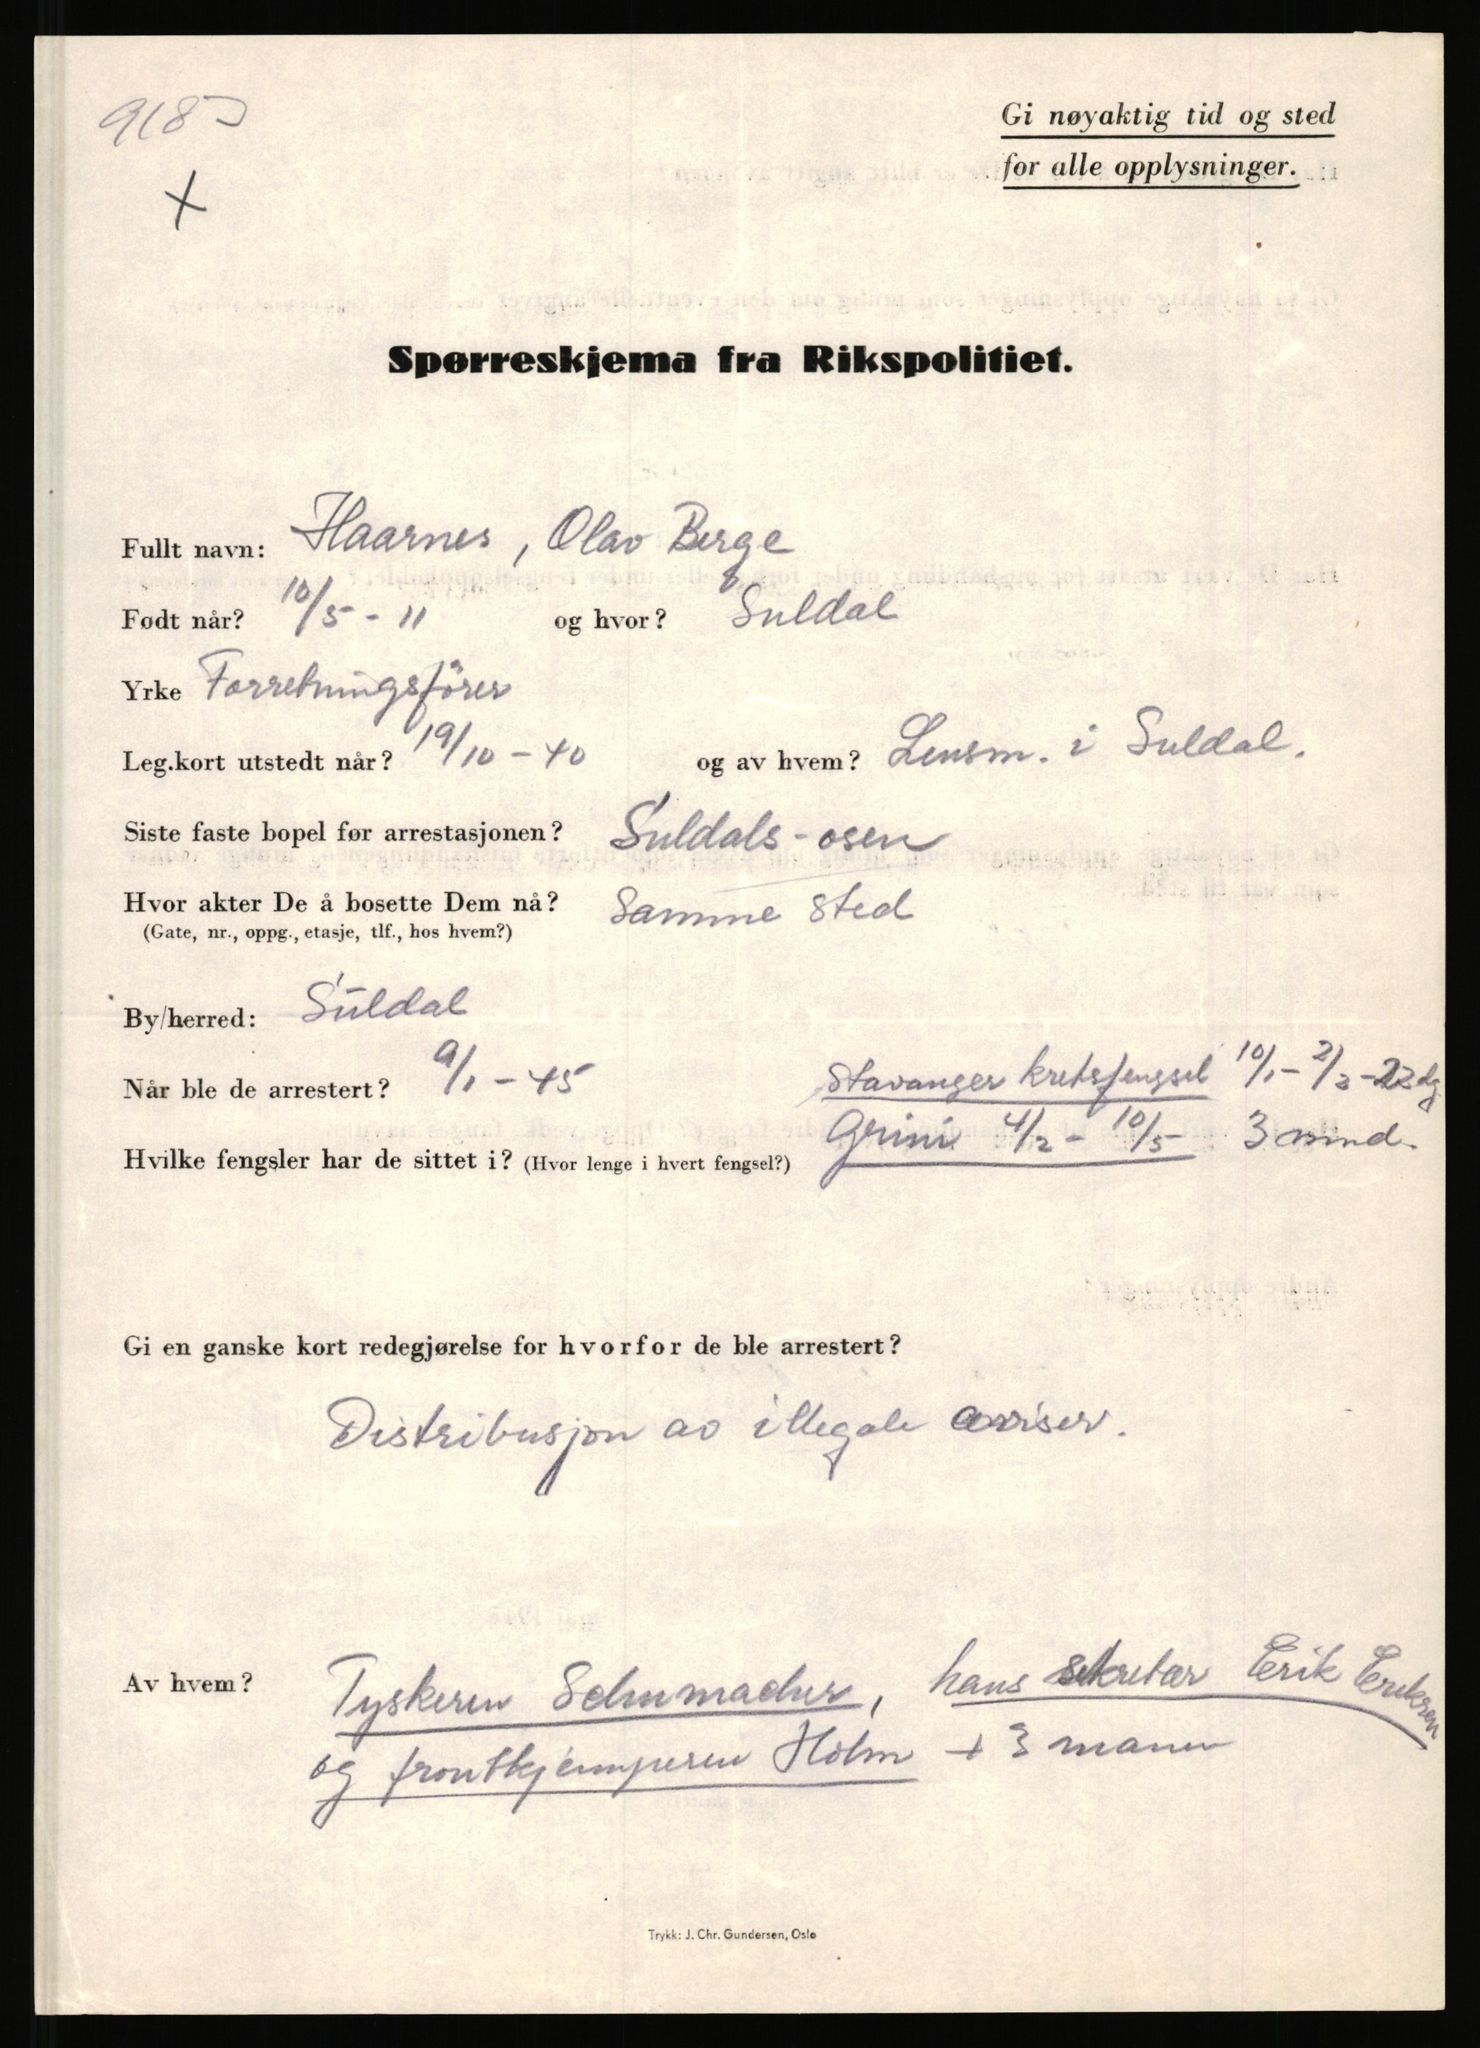 Gi nøyaktig tid og sted
for alle opplysninger.
X
Spørreskjema fra Rikspolitiet.
Fullt navn: Haarnes, Olav Berge
Født når? 10/5 - 11 og hvor? Suldal
Yrke Forretningsfører
Leg.kort utstedt når? 19/10 - 40 og av hvem? Lensm. i Suldal.
Siste faste bopel før arrestasjonen? Suldals-osen
Hvor akter De å bosette Dem nå? Samme sted
(Gate, nr., oppg., etasje, tlf., hos hvem?)
By/herred: Suldal
Når ble de arrestert? 9/1 - 45 Stavanger kretsfengsel 10/1 - 2/2 - 22 dg
Hvilke fengsler har de sittet i? (Hvor lenge i hvert fengsel?) Grini 4/2 - 10/5 3 mnd.
Gi en ganske kort redegjørelse for hvorfor de ble arrestert?
Distribusjon av illegale aviser.
Av hvem? Tyskeren Schumacher, hans sekretær Erik Eriksen
og frontkjemperen Holm + 3 mann
Trykk: J. Chr. Gundersen, Oslo